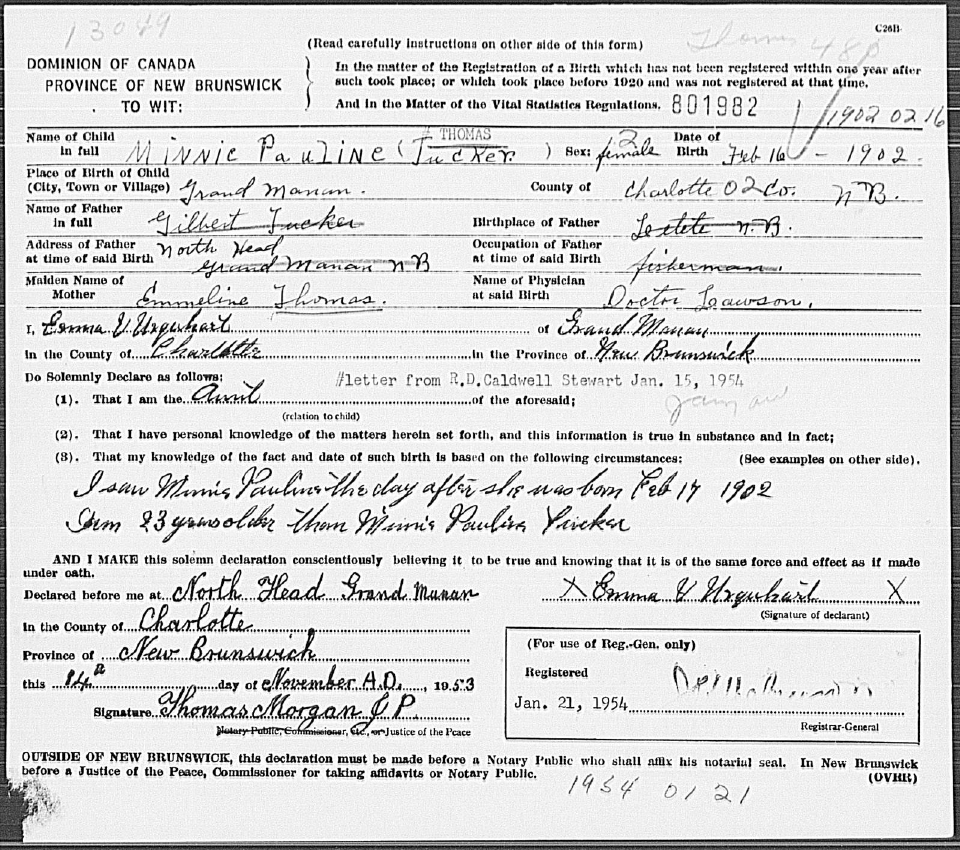 13049
C26B
Thomas 48P
(Read carefully instructions on other side of this form)
DOMINION OF CANADA
PROVINCE OF NEW BRUNSWICK
TO WIT:
In the matter of the Registration of a Birth which has not been registered within one year after
such took place; or which took place before 1920 and was not registered at that time.
And in the Matter of the Vital Statistics Regulations. 801982
1902 02 16
# THOMAS
Name of Child in full Minnie Pauline (Tucker) Sex: female 2 Date of Birth Feb 16 - 1902.
Place of Birth of Child
(City, Town or Village) Grand Manan. County of Charlotte 02 Co. N B.
Name of Father in full Gilbert Tucker Birthplace of Father Letete N.B.
Address of Father at time of said Birth North Head Grand Manan N B Occupation of Father at time of said Birth fisherman.
Maiden Name of Mother Emmeline Thomas. Name of Physician at said Birth Doctor Lawson.
I, Emma V Urquhart of Grand Manan
in the County of Charlotte in the Province of New Brunswick
Do Solemnly Declare as follows: #letter from R.D.Caldwell Stewart Jan. 15, 1954
(1). That I am the Aunt of the aforesaid;
(relation to child)
(2). That I have personal knowledge of the matters herein set forth, and this information is true in substance and in fact;
(3). That my knowledge of the fact and date of such birth is based on the following circumstances: (See examples on other side).
I saw Minnie Pauline the day after she was born Feb 17 1902
I am 23 years older than Minnie Pauline Tucker
AND I MAKE this solemn declaration conscientiously believing it to be true and knowing that it is of the same force and effect as if made
under oath.
Declared before me at North Head Grand Manan X Emma V Urquhart X
(Signature of declarant)
in the County of Charlotte
Province of New Brunswick
this 14th day of November A.D., 1953
Signature Thomas Morgan J P.
Notary Public, Commissioner, etc., or Justice of the Peace
(For use of Reg.-Gen. only)
Registered
Jan. 21, 1954
Registrar-General
OUTSIDE OF NEW BRUNSWICK, this declaration must be made before a Notary Public who shall affix his notarial seal. In New Brunswick
before a Justice of the Peace, Commissioner for taking affidavits or Notary Public. (OVER)
1954 01 21